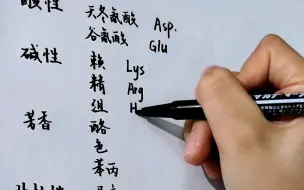 酸性 天冬氨酸 Asp.
谷氨酸 Glu
碱性 赖 Lys
精 Arg
组 H
芳香 酪
色
苯丙